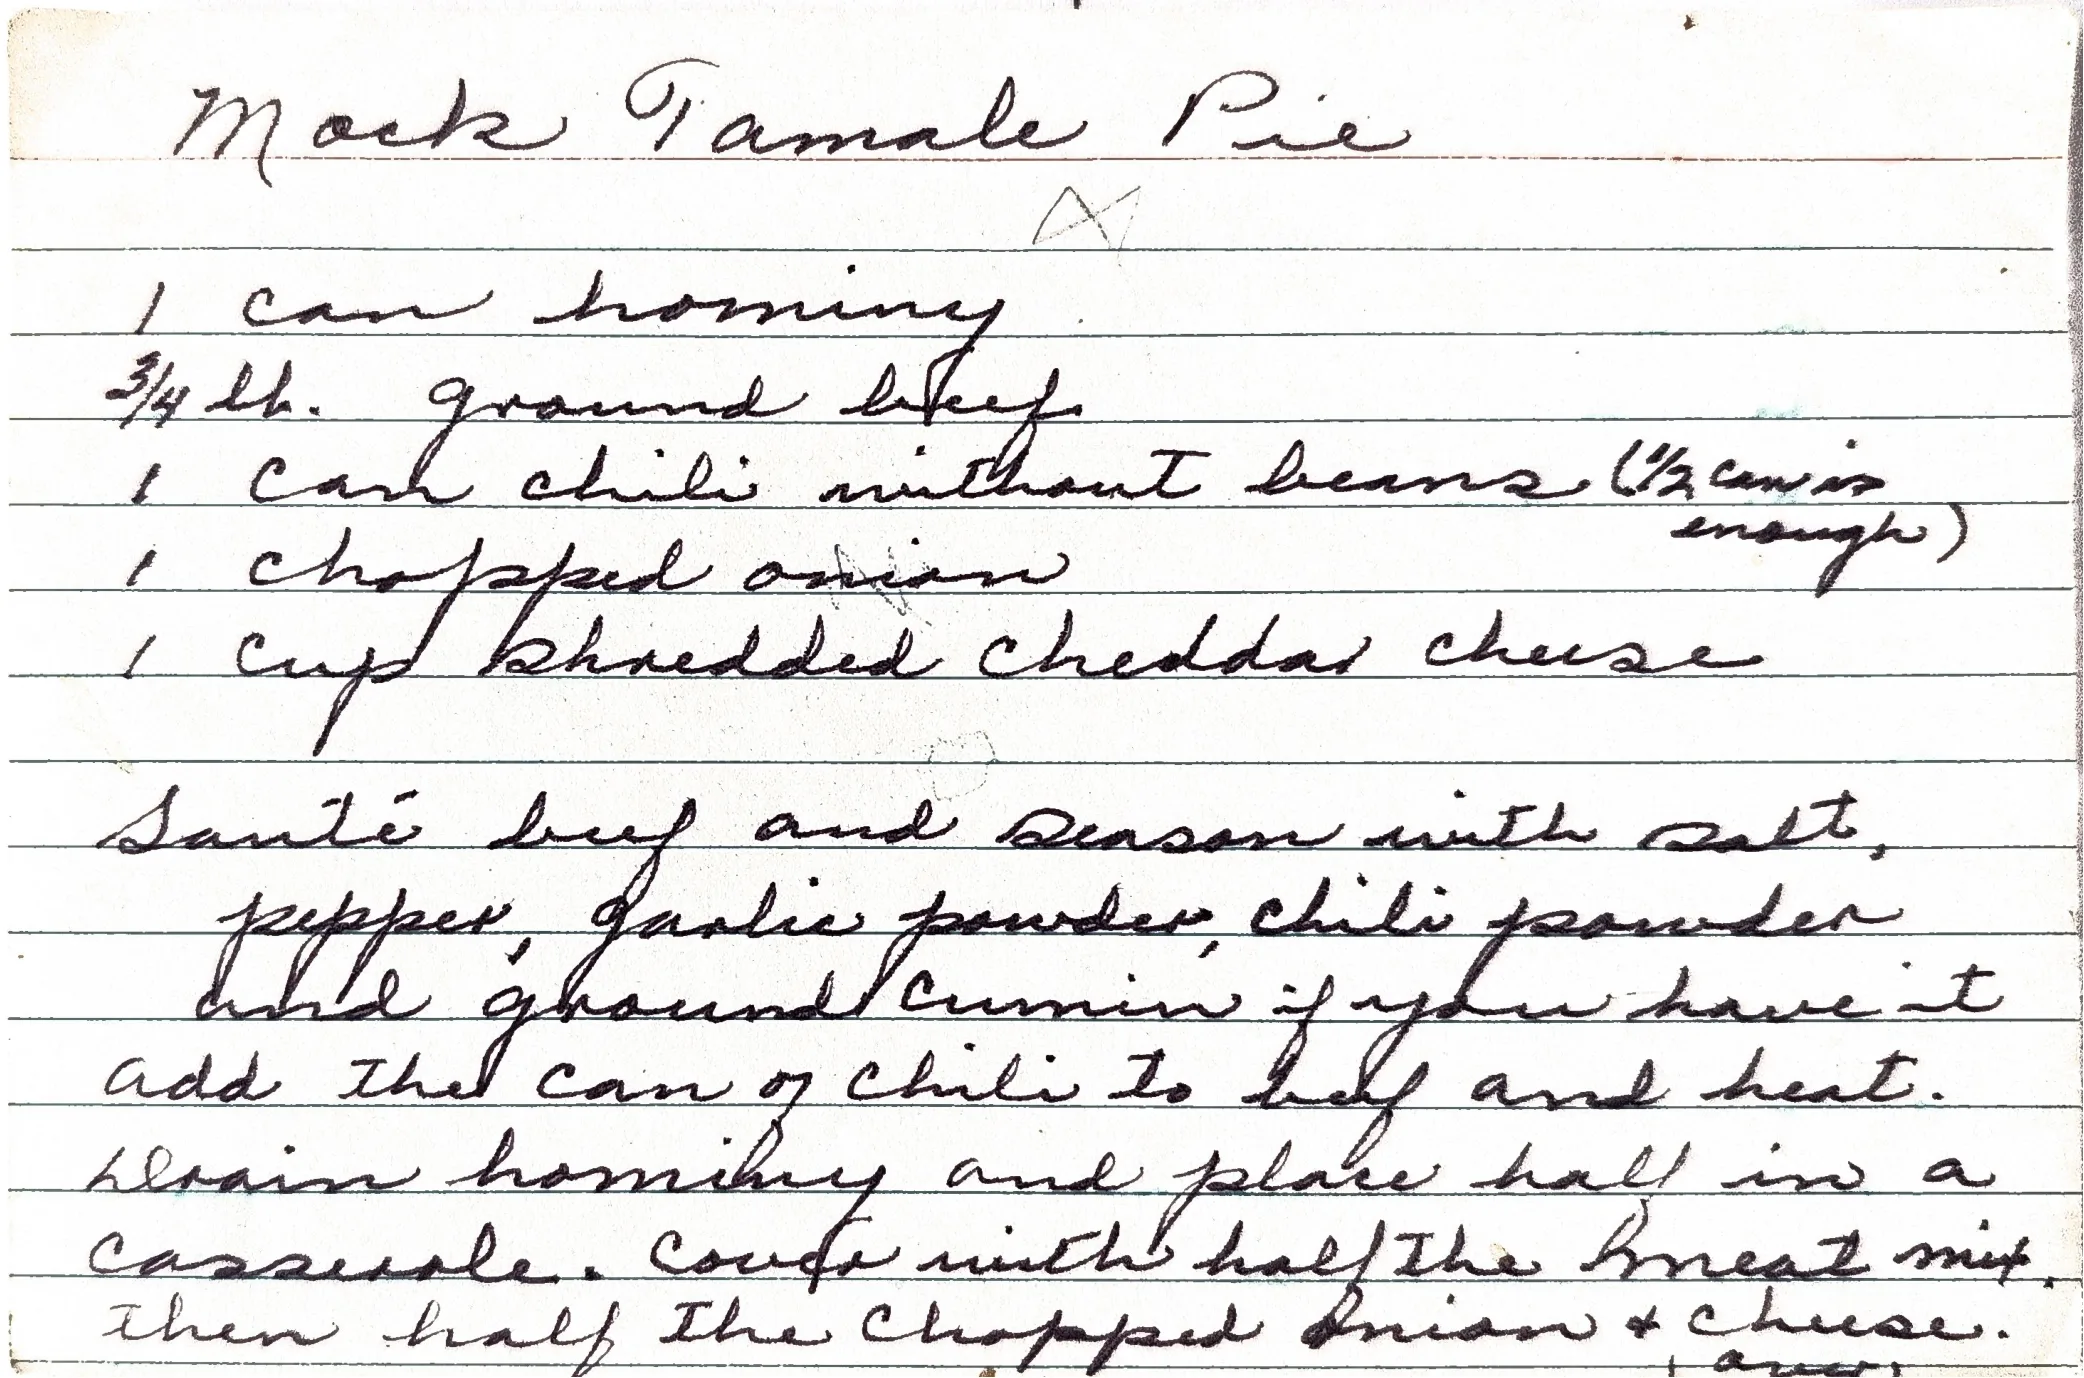 Mock Tamale Pie
1 can hominy
3/4 lb. ground beef
1 can chili without beans (1/2 can is
enough)
1 chopped onion
1 cup shredded cheddar cheese
Sauté beef and season with salt,
pepper, garlic powder, chili powder
and ground cumin if you have it
add the can of chili to beef and heat.
Drain hominy and place half in a
casserole. Cover with half the meat mix.
then half the chopped onion + cheese.